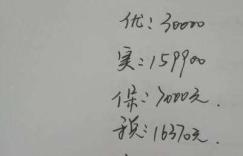 优:30000
实:159900
保:7000元.
税:16370元.